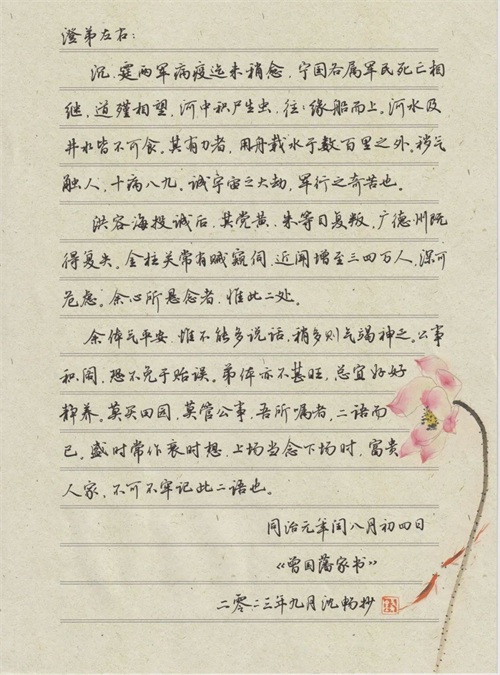 澄弟左右：
沅、霆两军病疫迄未稍愈，宁国各属军民死亡相
继，道殣相望，河中积尸生虫，往缘船而上，河水及
井水皆不可食。其有力者，用舟载水于数百里之外。秽气
触人，十病八九。诚宇宙之大劫，军行之奇苦也。
洪容海投诚后，其党黄、朱等目复叛，广德州既
得复失。金柱关常有贼窥伺，近闻增至三四万人，深可
危虑。余心所悬念者，惟此二处。
余体气平安，惟不能多说话，稍多则气竭神乏。公事
积阁，恐不免于贻误。弟体亦不甚旺，总宜好好
静养。莫买田园，莫管公事，吾所嘱者，二语而
已。盛时常作衰时想，上场当念下场时，富贵
人家，不可不牢记此二语也。
同治元年闰八月初四日
《曾国藩家书》
二零二三年九月沈畅抄